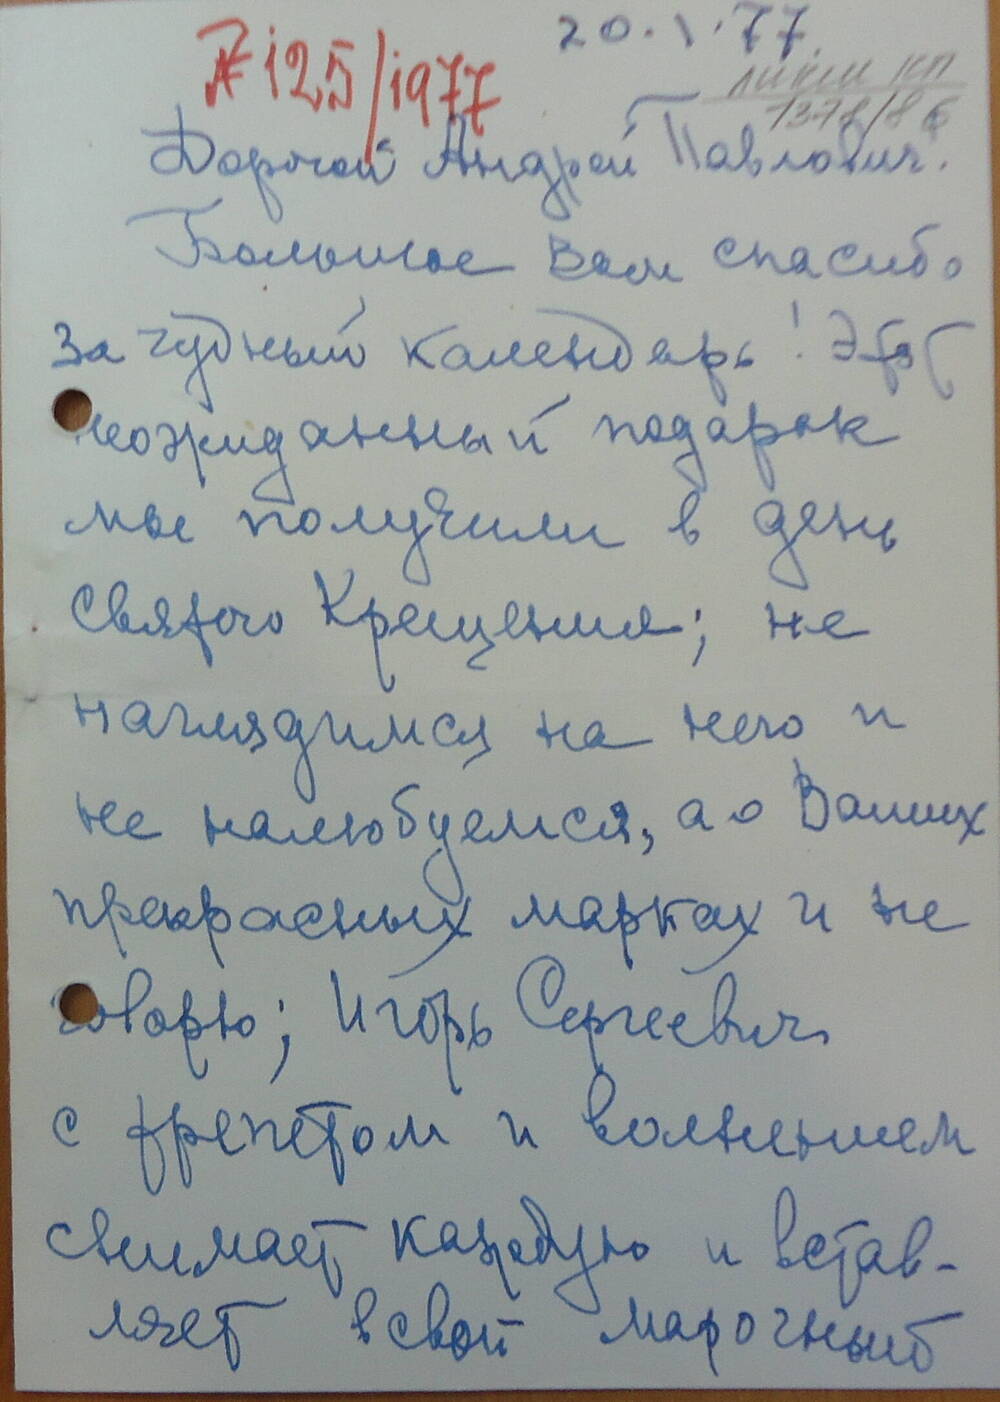 20.I.77.
№125/1977
ЛИКМ КП
1378/86
Дорогой Андрей Павлович!
Большое Вам спасибо
за чудный календарь! Этот
неожиданный подарок
мы получили в день
Святого Крещения; не
наглядимся на него и
не налюбуемся, а о Ваших
прекрасных марках и не
говорю; Игорь Сергеевич
с трепетом и волнением
снимает каждую и встав-
ляет в свой марочный